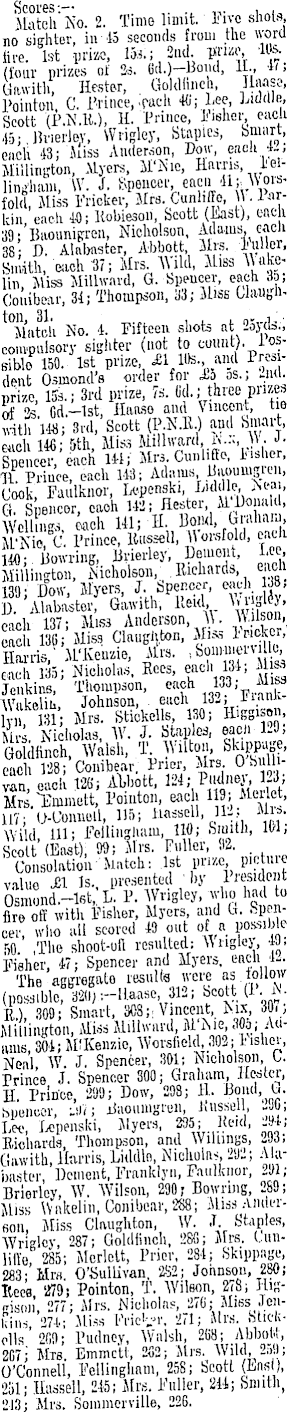 Scores:—
Match No. 2. Time limit. Five shots,
no sighter, in 45 seconds from the word
fire. 1st prize, 15s.; 2nd. prize, 10s.
(four prizes of 2s. 6d.)—Bond, H., 47;
Gawith, Hester, Goldfinch, Haase,
Pointon, C. Prince, each 46; Lee, Liddle,
Scott (P.N.R.), H. Prince, Fisher, each
45; Brierley, Wrigley, Staples, Smart,
each 43; Miss Anderson, Dow, each 42;
Millington, Myers, M'Nie, Harris, Fel-
lingham, W. J. Spencer, each 41; Wors-
fold, Miss Fricker, Mrs. Cunliffe, W. Par-
kin, each 40; Robieson, Scott (East), each
39; Baounigren, Nicholson, Adams, each
38; D. Alabaster, Abbott, Mrs. Fuller,
Smith, each 37; Mrs. Wild, Miss Wake-
lin, Miss Millward, G. Spencer, each 35;
Conibear, 34; Thompson, 33; Miss Claugh-
ton, 31.
Match No. 4. Fifteen shots at 25yds.,
compulsory sighter (not to count). Pos-
sible 150. 1st prize, £1 10s., and Presi-
dent Osmond's order for £5 5s.; 2nd.
prize, 15s.; 3rd prize, 7s. 6d.; three prizes
of 2s. 6d.—1st, Haase and Vincent, tie
with 148; 3rd, Scott (P.N.R.) and Smart,
each 146; 5th, Miss Millward, Nix, W. J.
Spencer, each 144; Mrs. Cunliffe, Fisher,
H. Prince, each 143; Adams, Baoumgren,
Cook, Faulknor, Lepenski, Liddle, Neal,
G. Spencer, each 142; Hester, M'Donald,
Wellings, each 141; H. Bond, Graham,
M'Nie, C. Prince, Russell, Worsfold, each
140; Bowring, Brierley, Dement, Lee,
Millington, Nicholson, Richards, each
139; Dow, Myers, J. Spencer, each 138;
D. Alabaster, Gawith, Reid, Wrigley,
each 137; Miss Anderson, W. Wilson,
each 136; Miss Claughton, Miss Fricker,
Harris, M'Kenzie, Mrs. Sommerville,
each 135; Nicholas, Rees, each 134; Miss
Jenkins, Thompson, each 133; Miss
Wakelin, Johnson, each 132; Frank-
lyn, 131; Mrs. Stickells, 130; Higgison,
Mrs. Nicholas, W. J. Staples, each 129;
Goldfinch, Walsh, T. Wilton, Skippage,
each 128; Conibear, Prior, Mrs. O'Sulli-
van, each 126; Abbott, 124; Pudney, 123;
Mrs. Emmett, Pointon, each 119; Merlet,
117; O-Connell, 115; Hassell, 112; Mrs.
Wild, 111; Fellingham, 110; Smith, 101;
Scott (East), 99; Mrs. Fuller, 92.
Consolation Match: 1st prize, picture
value £1 1s., presented by President
Osmond.—1st, L. P. Wrigley, who had to
fire off with Fisher, Myers, and G. Spen-
cer, who all scored 49 out of a possible
50. The shoot-off resulted: Wrigley, 49;
Fisher, 47; Spencer and Myers, each 42.
The aggregate results were as follow
(possible, 320):—Haase, 312; Scott (P. N.
R.), 309; Smart, 308; Vincent, Nix, 307;
Millington, Miss Millward, M'Nie, 305; Ad-
ams, 304; M'Kenzie, Worsfield, 302; Fisher,
Neal, W. J. Spencer, 301; Nicholson, C.
Prince J. Spencer 300; Graham, Hester,
H. Prince, 299; Dow, 298; H. Bond, G.
Spencer, 297; Baoumgren, Russell, 296;
Lee, Lepenski, Myers, 295; Reid, 294;
Richards, Thompson, and Willings, 293;
Gawith, Harris, Liddle, Nicholas, 292; Ala-
baster, Dement, Franklyn, Faulknor, 291;
Brierley, W. Wilson, 290; Bowring, 289;
Miss Wakelin, Conibear, 288; Miss Ander-
son, Miss Claughton, W. J. Staples,
Wrigley, 287; Goldfinch, 286; Mrs. Cun-
liffe, 285; Merlett, Prier, 284; Skippage,
283; Mrs. O'Sullivan, 282; Johnson, 280;
Rees, 279; Pointon, T. Wilson, 278; Hig-
gison, 277; Mrs. Nicholas, 276; Miss Jen-
kins, 274; Miss Fricker, 271; Mrs. Stick-
ells, 269; Pudney, Walsh, 268; Abbott,
267; Mrs. Emmett, 262; Mrs. Wild, 259;
O'Connell, Fellingham, 258; Scott (East),
251; Hassell, 245; Mrs. Fuller, 244; Smith,
243; Mrs. Sommerville, 226.